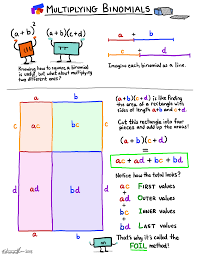 MULTIPLYING BINOMIALS
(a+b)²
(a+b)(c+d)
a + b
c + d
Knowing how to square a binomial
is useful, but what about multiplying
two different ones?
Imagine each binomial as a line.
a b
c ac bc c
d ad bd d
a b
(a+b)(c+d) is like finding
the area of a rectangle with
sides of length a+b and c+d.
Cut this rectangle into four
pieces and add up the areas!
(a+b)(c+d)
=
ac + ad + bc + bd
Notice how this total looks?
ac FIRST values
+
ad OUTER values
+
bc INNER values
+
bd LAST values
That's why it's called the
FOIL method!